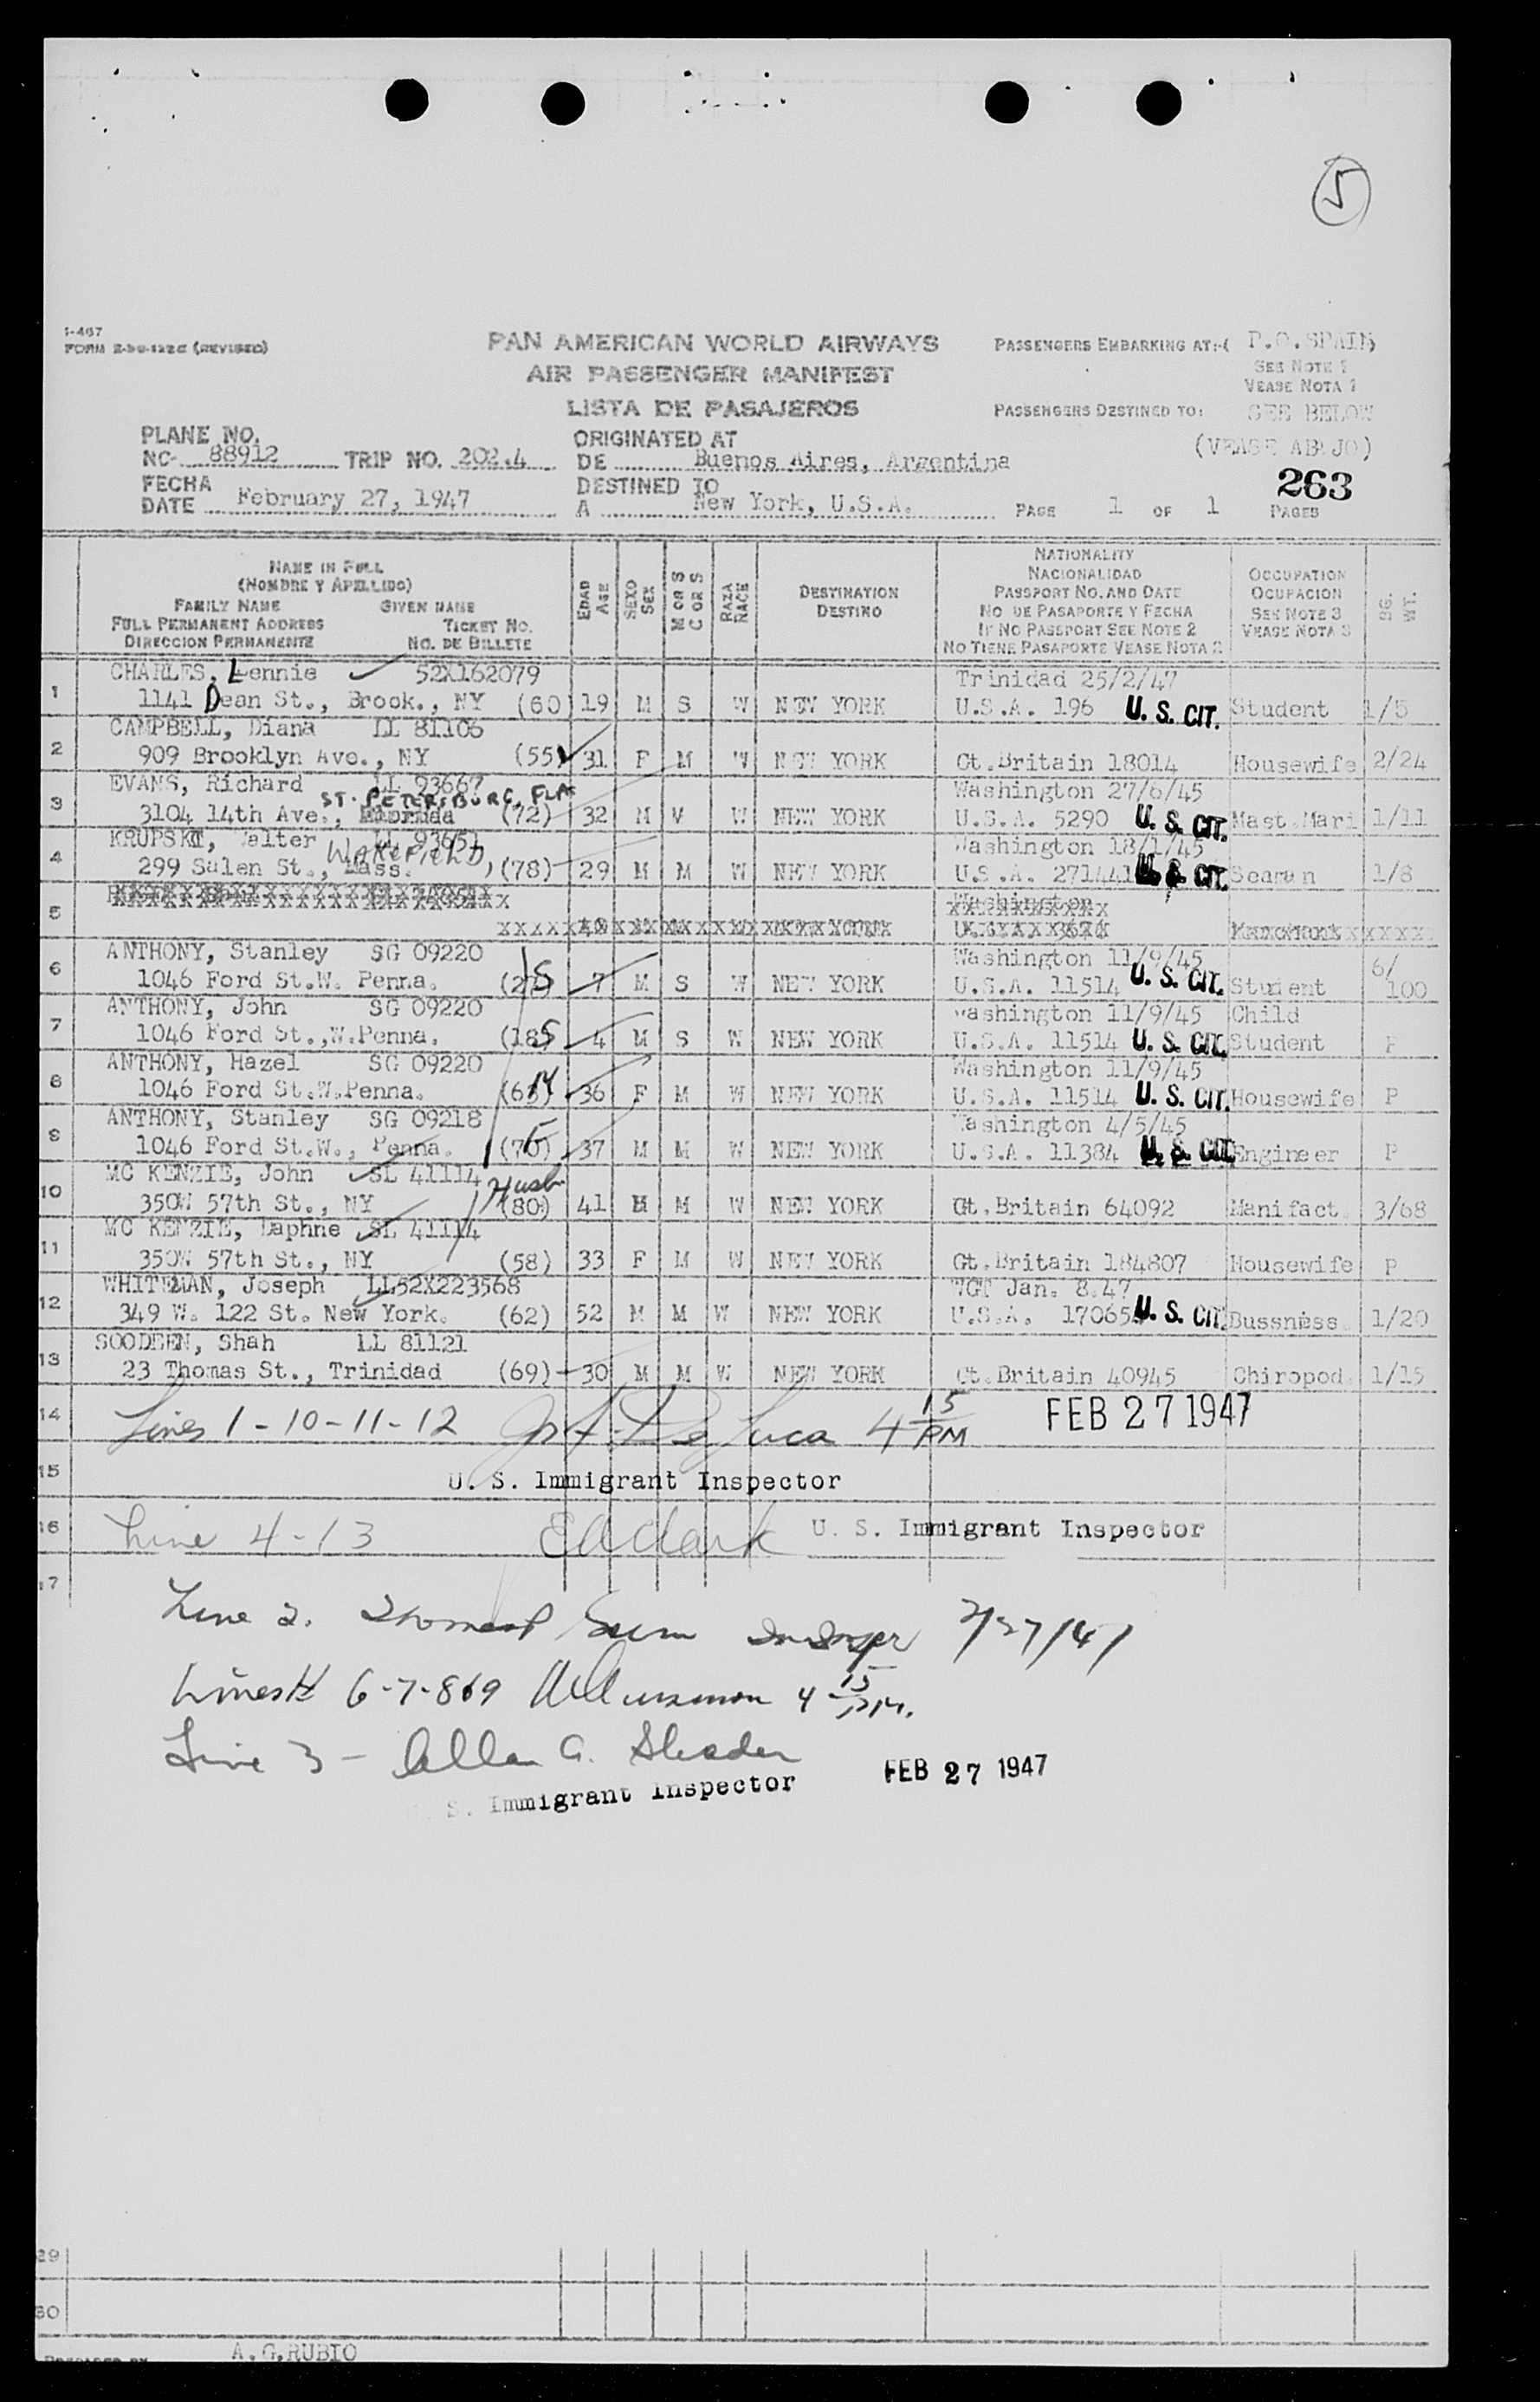 5
I-467
FORM (REVISED)
PAN AMERICAN WORLD AIRWAYS
AIR PASSENGER MANIFEST
LISTA DE PASAJEROS
PASSENGERS EMBARKING AT:-( P.O.SPAIN)
SEE NOTE 1
VEASE NOTA 1
PASSENGERS DESTINED TO: SEE BELOW
(VEASE ABAJO)
PLANE NO.
NC- 88912 TRIP NO. 202.4
ORIGINATED AT
DE Buenos Aires, Argentina
FECHA
DATE February 27, 1947
DESTINED TO
A New York, U.S.A.
263
PAGE 1 OF 1 PAGES
NAME IN FULL
(NOMBRE Y APELLIDO)
FAMILY NAME GIVEN NAME
FULL PERMANENT ADDRESS TICKET NO.
DIRECCION PERMANENTE NO. DE BILLETE
EDAD AGE
SEXO SEX
M OR S C OR S
RAZA RACE
DESTINATION
DESTINO
NATIONALITY
NACIONALIDAD
PASSPORT NO. AND DATE
NO DE PASAPORTE Y FECHA
IF NO PASSPORT SEE NOTE 2
NO TIENE PASAPORTE VEASE NOTA 2
OCCUPATION
OCUPACION
SEE NOTE 3
VEASE NOTA 3
BG. WT.
CHARLES, Lennie 52X162079 Trinidad 25/2/47
1 1141 Dean St., Brook., NY (60) 19 M S W NEW YORK U.S.A. 196 U. S. CIT. Student 1/5
CAMPBELL, Diana LL 81106
2 909 Brooklyn Ave., NY (55) 31 F M W NEW YORK Gt.Britain 18014 Housewife 2/24
EVANS, Richard LL 93667 Washington 27/6/45
ST. PETERSBURG, FLA
3 3104 14th Ave., (72) 32 M W NEW YORK U.S.A. 5290 U. S. CIT. Mast.Mari 1/11
KRUPSKI, Walter LL 93651 Washington 18/1/45
WAKEFIELD,
4 299 Salen St., Mass. (78) 29 M M W NEW YORK U.S.A. 271441 U. S. CIT. Seaman 1/8
5
ANTHONY, Stanley SG 09220 Washington 11/9/45
6 1046 Ford St.W. Penna. 7 M S W NEW YORK U.S.A. 11514 U. S. CIT. Student 6/100
ANTHONY, John SG 09220 Washington 11/9/45 Child
7 1046 Ford St.,W.Penna. 4 M S W NEW YORK U.S.A. 11514 U. S. CIT. Student P
ANTHONY, Hazel SG 09220 Washington 11/9/45
8 1046 Ford St.W.Penna. 36 F M W NEW YORK U.S.A. 11514 U. S. CIT. Housewife P
ANTHONY, Stanley SG 09218 Washington 4/5/45
9 1046 Ford St.W., Penna. 37 M M W NEW YORK U.S.A. 11384 U. S. CIT. Engineer P
MC KENZIE, John SL 41114 Husb
10 350W 57th St., NY (80) 41 M M W NEW YORK Gt.Britain 64092 Manifact. 3/68
MC KENZIE, Daphne SL 41114
11 350W 57th St., NY (58) 33 F M W NEW YORK Gt.Britain 184807 Housewife P
WHITEMAN, Joseph LL52X223568 WGT Jan. 8.47
12 349 W. 122 St. New York. (62) 52 M M W NEW YORK U.S.A. 17065 U. S. CIT. Bussness. 1/20
SOODEEN, Shah LL 81121
13 23 Thomas St., Trinidad (69) 30 M M W NEW YORK Gt.Britain 40945 Chiropod. 1/15
14 Lines 1-10-11-12 De Luca 4 15 PM FEB 27 1947
15 U. S. Immigrant Inspector
16 Line 4-13 EA Clark U. S. Immigrant Inspector
17
Line 2. 2/27/47
Lines 6-7-8&9 4 15 P.M.
Line 3 - Allan G. Sleader
S. Immigrant Inspector FEB 27 1947
29
30
A.G.RUBIO